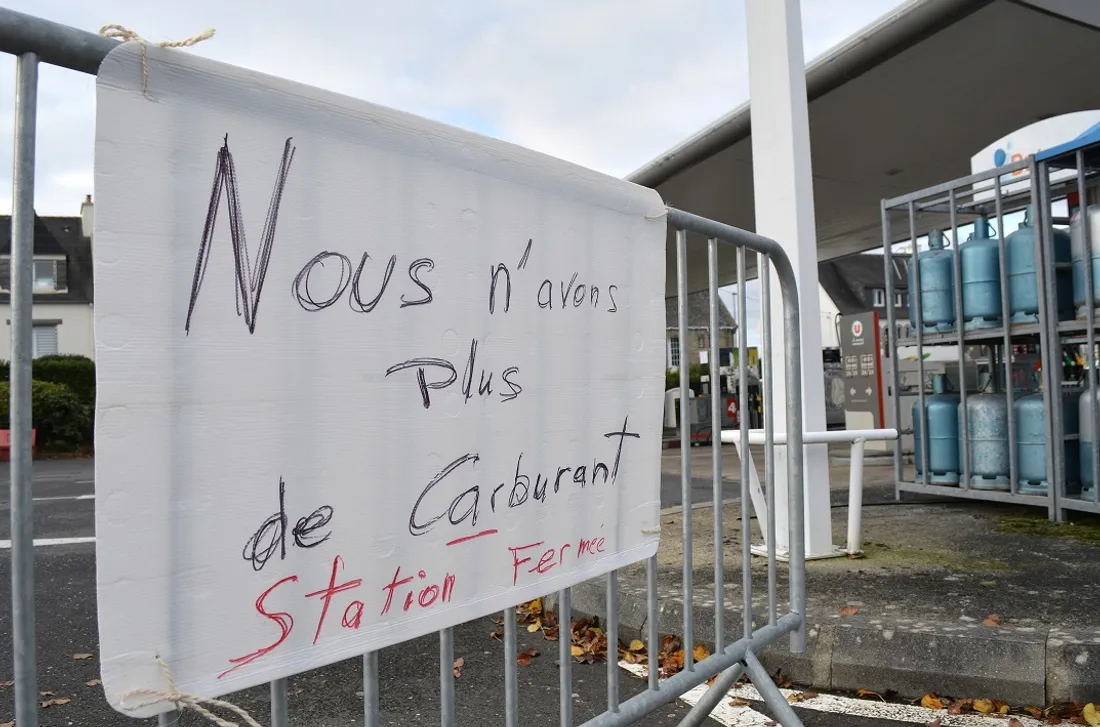 Nous n'avons
Plus
de Carburant
Station Fermeé
U
4